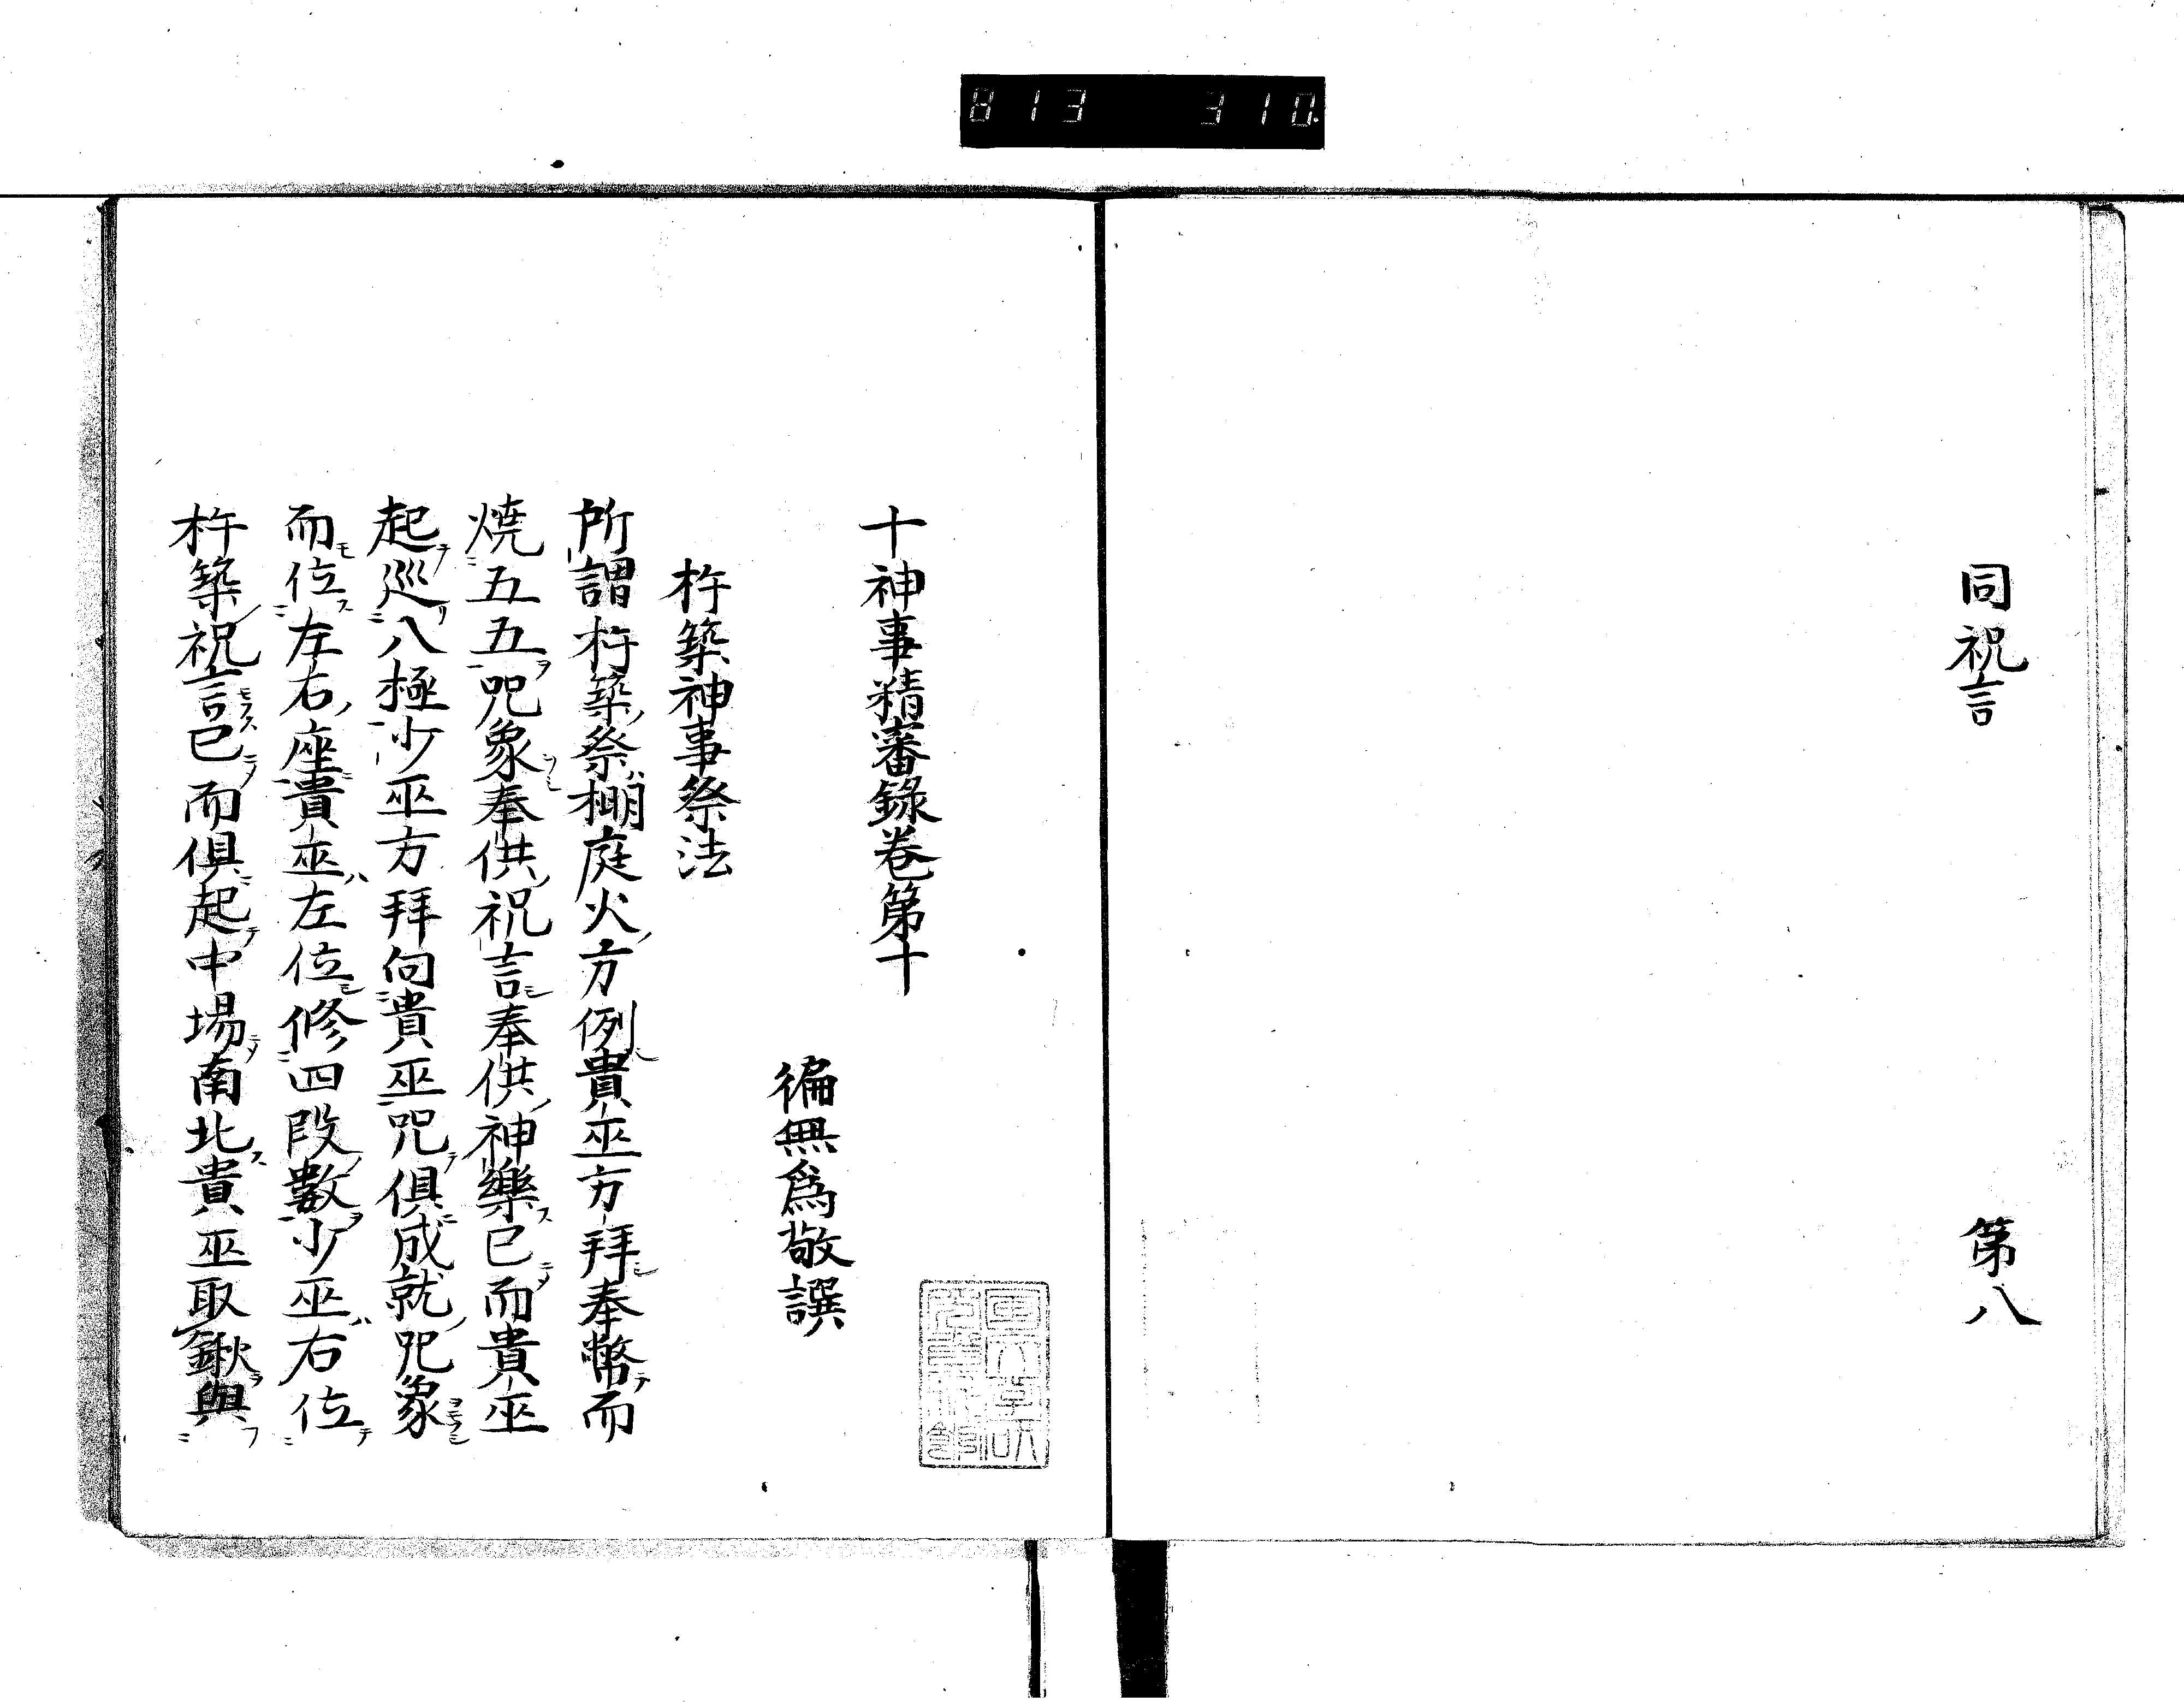 813 310
同祝言 第八
十神事精審錄卷第十
徧無爲敬譔
杵築神事祭法
所謂杵築祭棚庭火方例貴巫方拜奉幣而
燒五五咒象奉供祝言奉供神樂已而貴巫
起巡八極少巫方拜向貴巫咒俱成就咒象
而位左右座貴巫左位修四段數少巫右位
杵築祝言已而俱起中場南北貴巫取鍬與